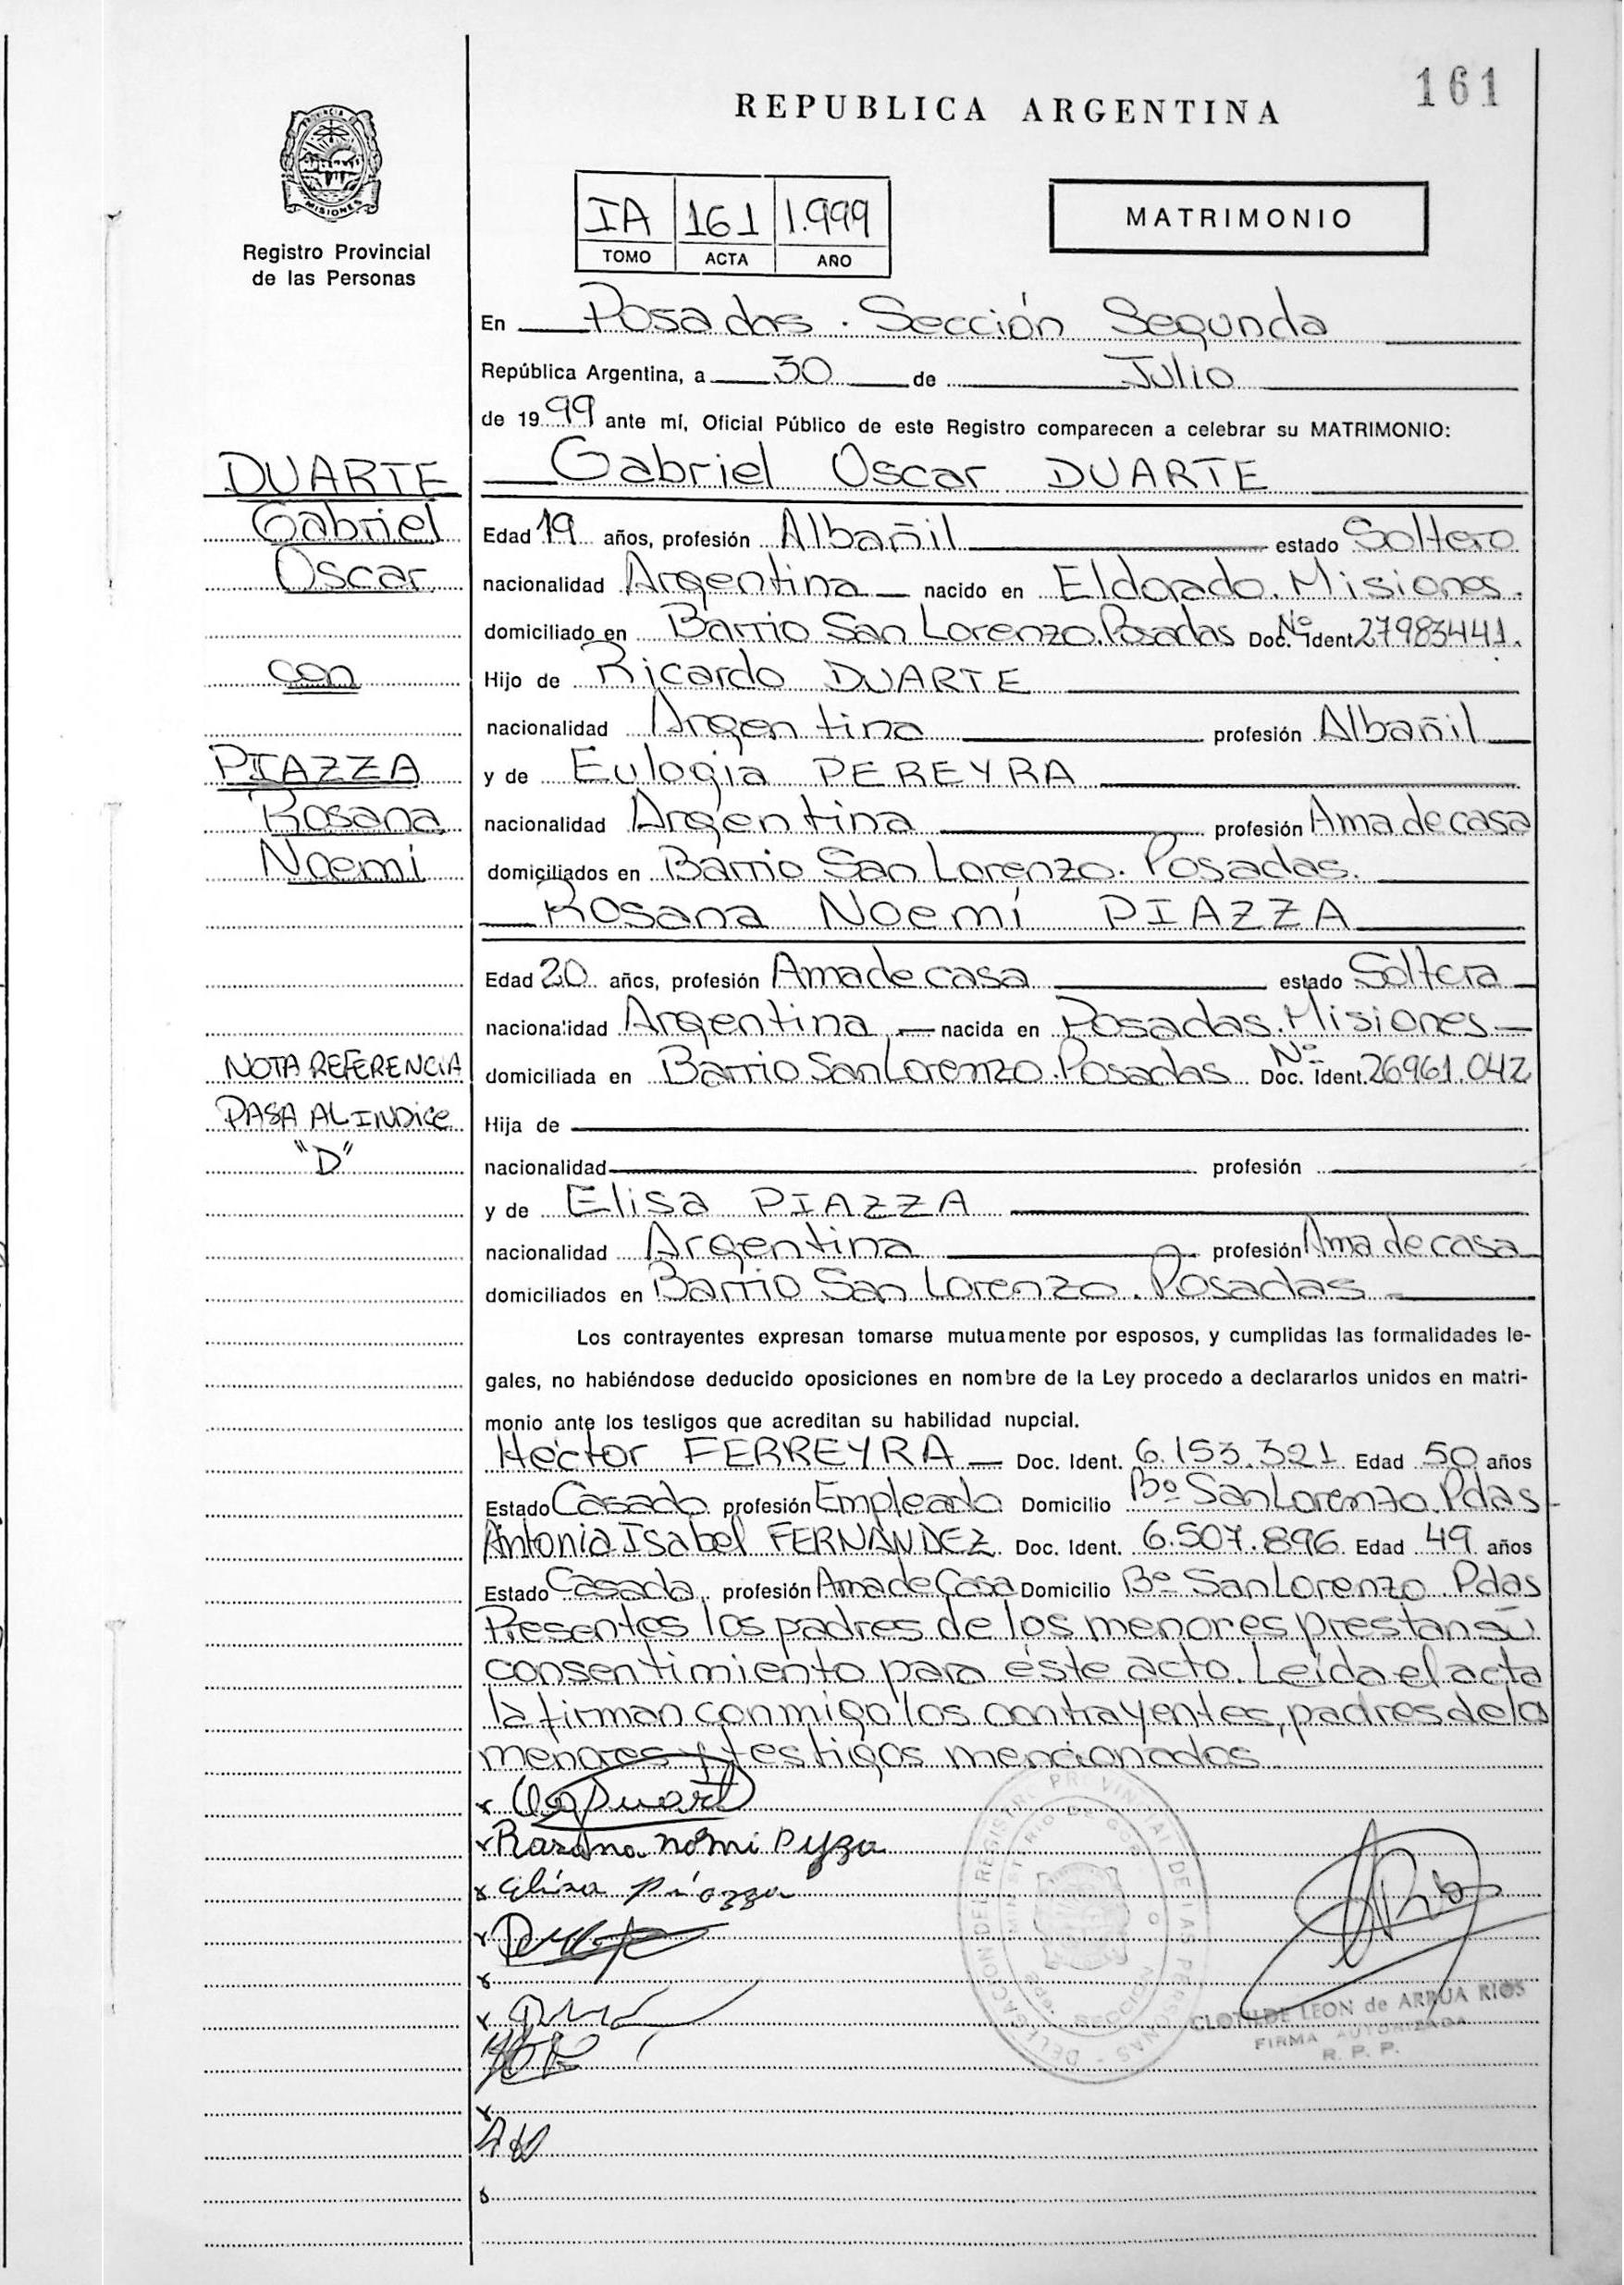 161
REPUBLICA ARGENTINA
PROVINCIA DE
MISIONES
Registro Provincial
de las Personas
IA 161 1.999
TOMO ACTA AÑO
MATRIMONIO
En Posadas. Sección Segunda
República Argentina, a 30 de Julio
de 1999 ante mí, Oficial Público de este Registro comparecen a celebrar su MATRIMONIO:
DUARTE
Gabriel
Oscar
con
PIAZZA
Rosana
Noemí
Gabriel Oscar DUARTE
Edad 19 años, profesión Albañil estado Soltero
nacionalidad Argentina nacido en Eldorado. Misiones.
domiciliado en Barrio San Lorenzo. Posadas Doc. Nº Ident 27983441.
Hijo de Ricardo DUARTE
nacionalidad Argentina profesión Albañil
y de Eulogia PEREYRA
nacionalidad Argentina profesión Ama de casa
domiciliados en Barrio San Lorenzo. Posadas.
Rosana Noemí PIAZZA
Edad 20 años, profesión Ama de casa estado Soltera
nacionalidad Argentina nacida en Posadas. Misiones
domiciliada en Barrio San Lorenzo. Posadas Doc. Nº Ident. 26961.042
NOTA REFERENCIA
PASA AL INDice
"D"
Hija de
nacionalidad profesión
y de Elisa PIAZZA
nacionalidad Argentina profesión Ama de casa
domiciliados en Barrio San Lorenzo. Posadas
Los contrayentes expresan tomarse mutuamente por esposos, y cumplidas las formalidades le-
gales, no habiéndose deducido oposiciones en nombre de la Ley procedo a declararlos unidos en matri-
monio ante los testigos que acreditan su habilidad nupcial.
Héctor FERREYRA Doc. Ident. 6.153.321 Edad 50 años
Estado Casado profesión Empleado Domicilio Bº San Lorenzo. Pdas
Antonia Isabel FERNANDEZ Doc. Ident. 6.507.896 Edad 49 años
Estado Casada profesión Ama de Casa Domicilio Bº San Lorenzo. Pdas
Presentes los padres de los menores prestan su
consentimiento para éste acto. Leída el acta
la firman conmigo los contrayentes, padres de lo
menores y testigos mencionados
Rosana nomi Pyza
Elisa Piazza
DELEGACION DEL REGISTRO PROVINCIAL DE LAS PERSONAS
MINISTERIO DE GOBIERNO
SECCION
CLOTILDE LEON de ARRUA RIOS
FIRMA AUTORIZADA
R. P. P.